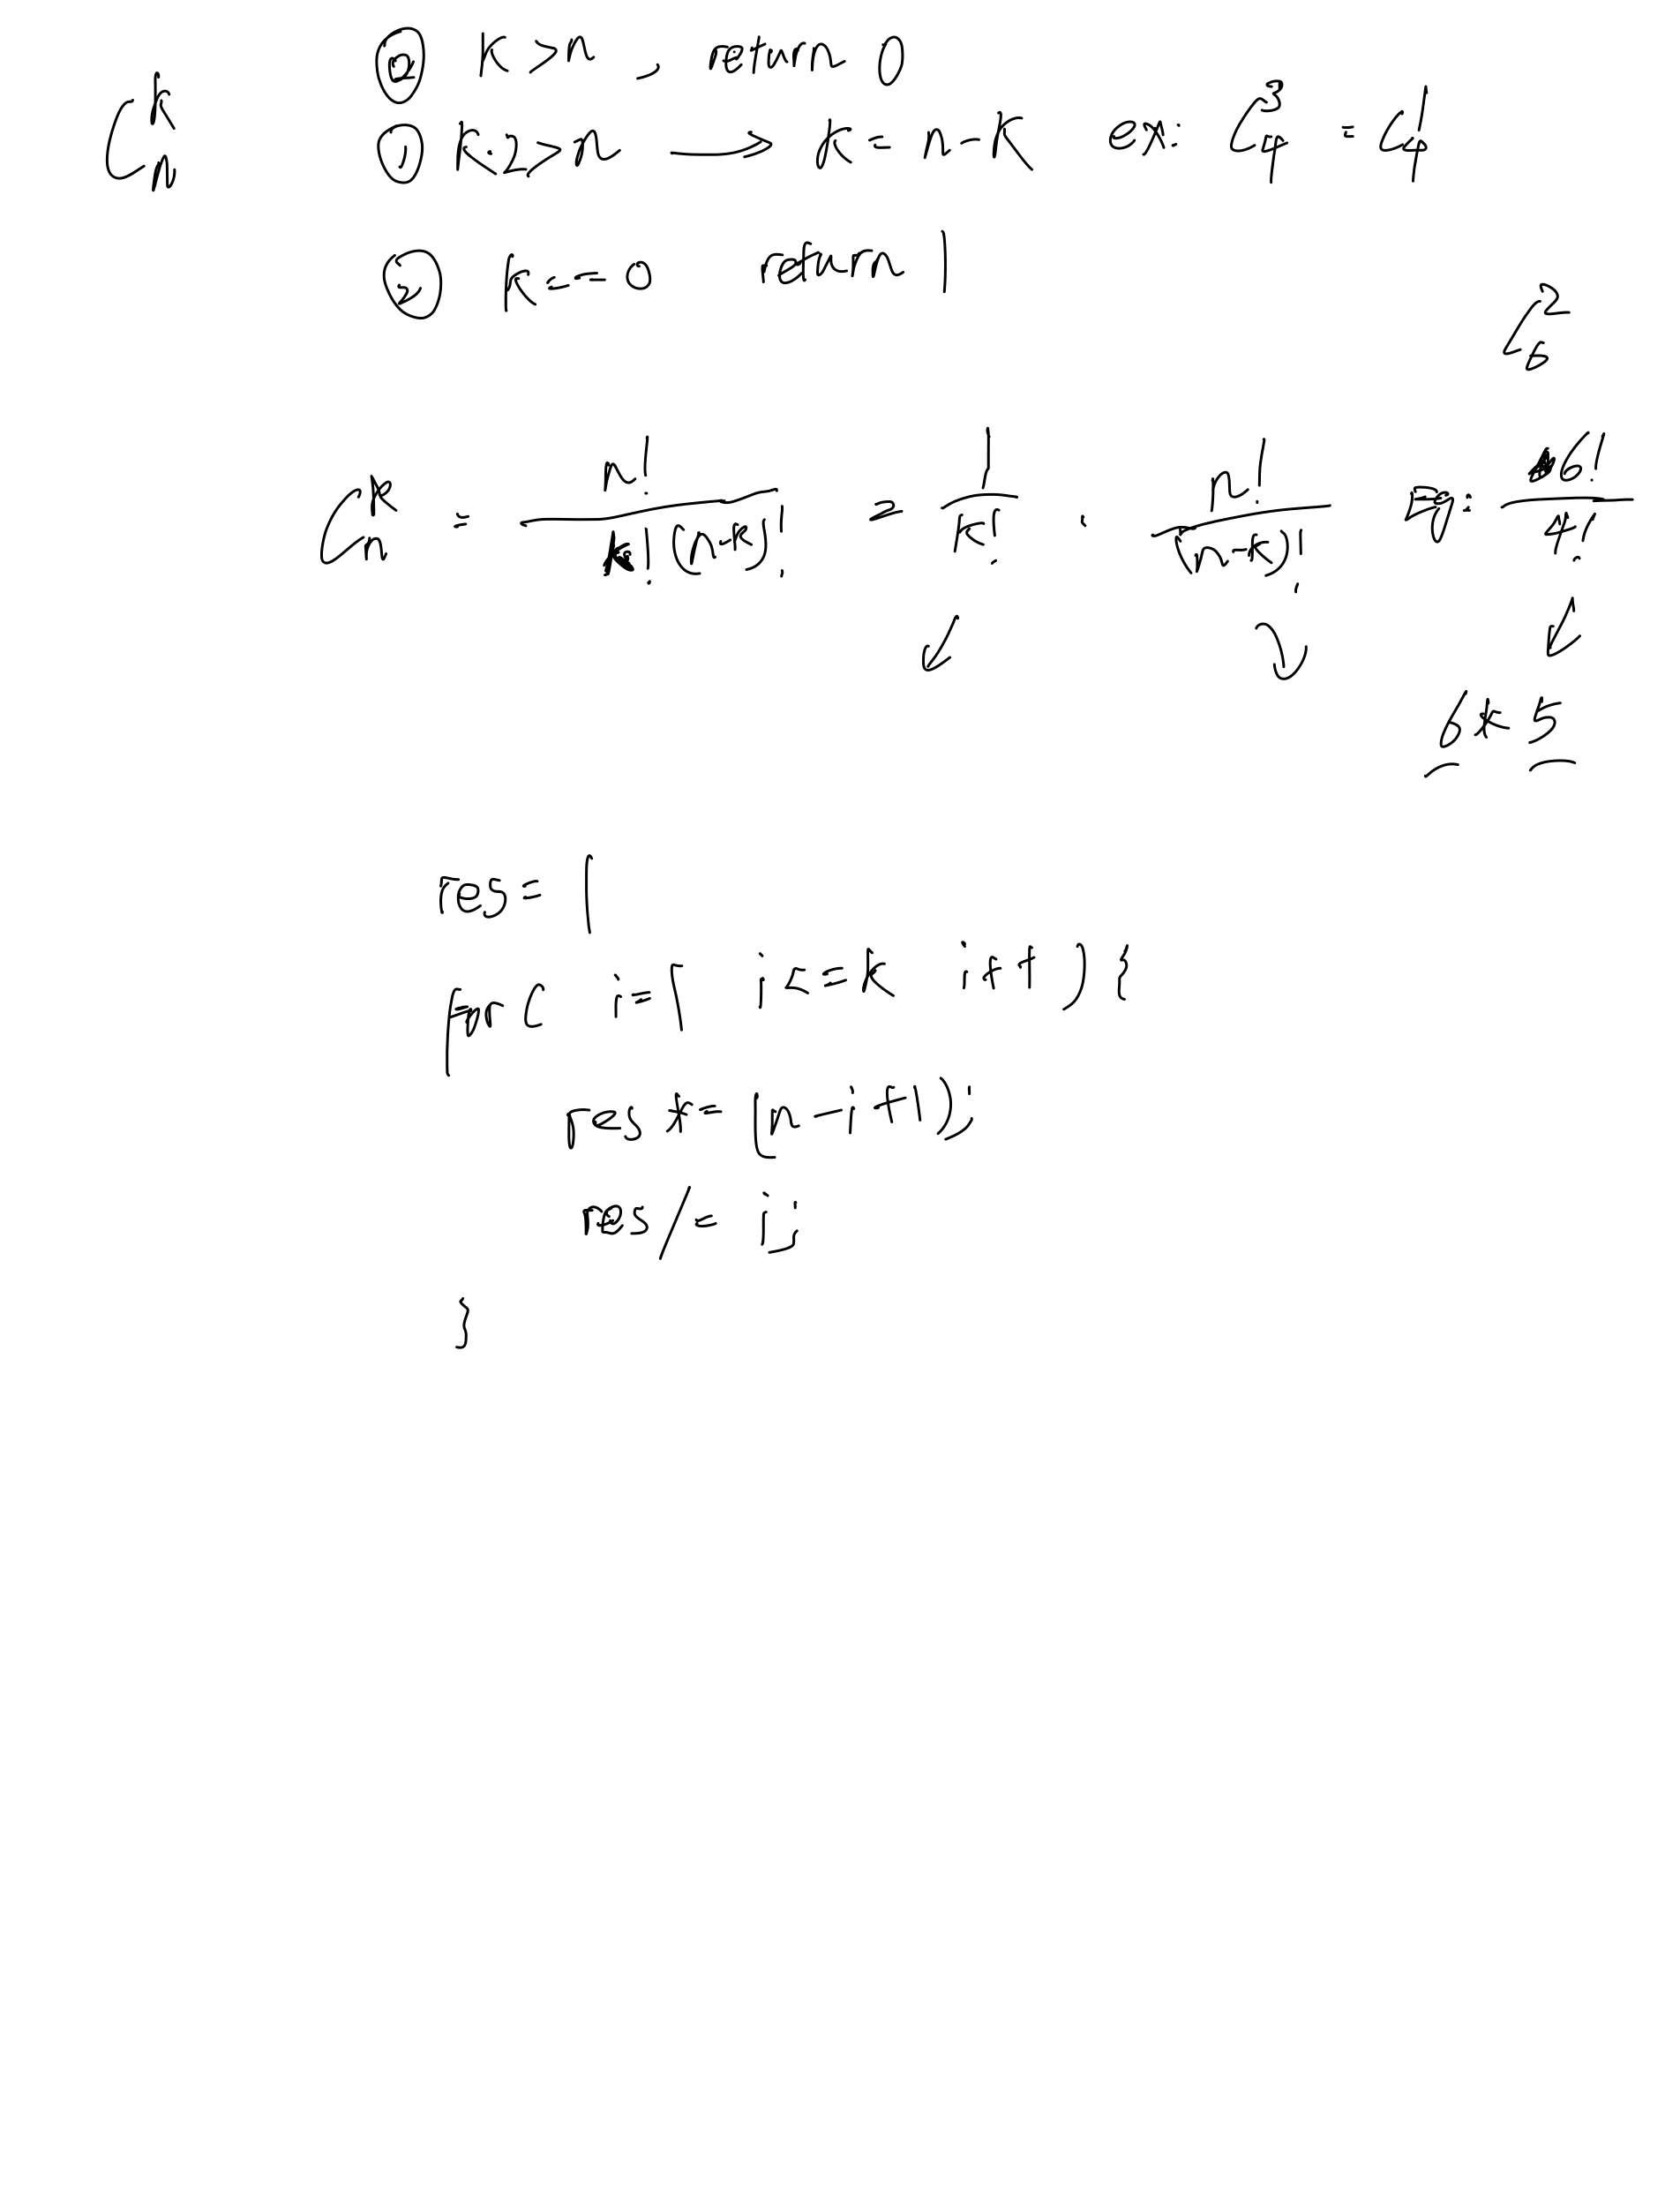 ⓪ K>n , return 0
C_n^k ① K·2>n → k = n-K ex: C_4^3 = C_4^1
② K==0 return 1
C_6^2
C_n^k = n!/(k!(n-k)!) = 1/k! · n!/(n-k)! 例: 6!/4!
6*5
res= 1
for( i=1 i<=k i++){
res *= (n-i+1);
res/= i;
}